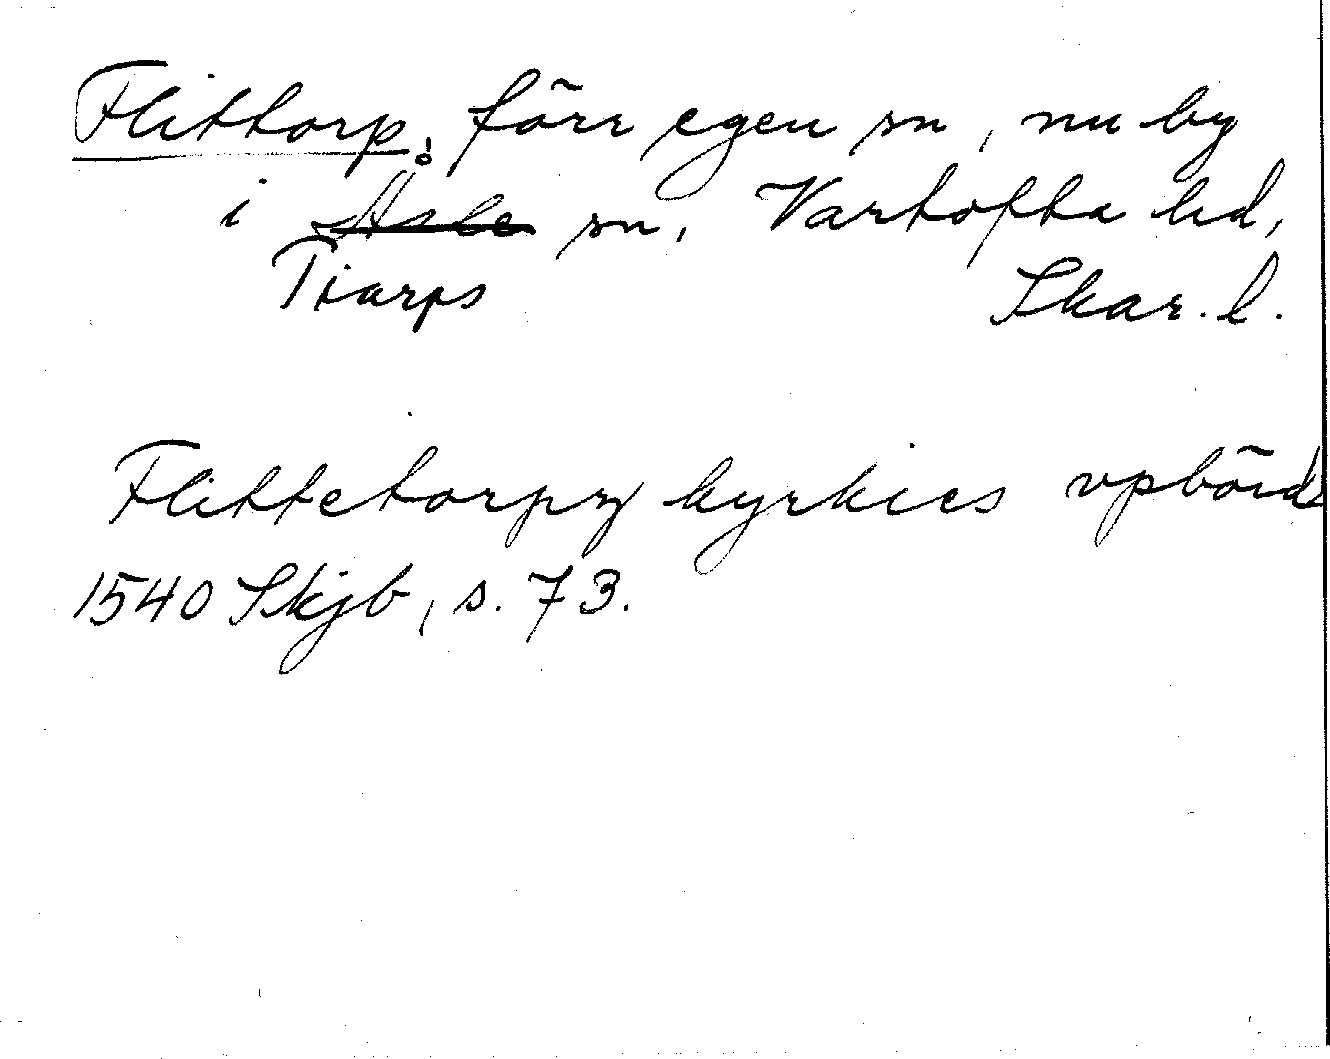 Flittorp, förr egen sn, nu by
i Åsle sn, Vartofta hd,
Tiarps Skar. l.
Flittetorpz kyrkies vpbörd
1540 Skjb, s. 73.